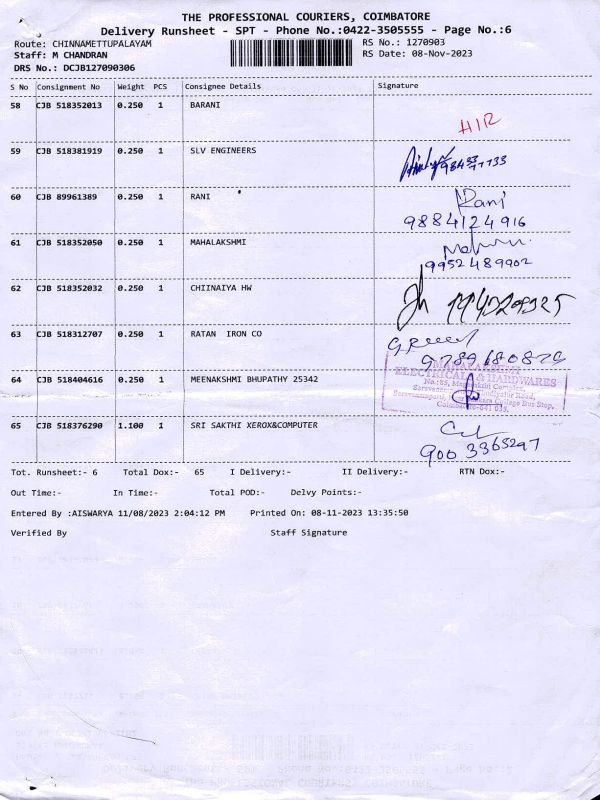 THE PROFESSIONAL COURIERS, COIMBATORE
Delivery Runsheet - SPT - Phone No.:0422-3505555 - Page No.:6
Route: CHINNAMETTUPALAYAM RS No.: 1270903
Staff: M CHANDRAN RS Date: 08-Nov-2023
DRS No.: DCJB127090306
S No Consignment No Weight PCS Consignee Details Signature
58 CJB 518352013 0.250 1 BARANI
59 CJB 518381919 0.250 1 SLV ENGINEERS
60 CJB 89961389 0.250 1 RANI Rani
9884124916
61 CJB 518352050 0.250 1 MAHALAKSHMI
9952489902
62 CJB 518352032 0.250 1 CHIINAIYA HW
63 CJB 518312707 0.250 1 RATAN IRON CO
64 CJB 518404616 0.250 1 MEENAKSHMI BHUPATHY 25342
ELECTRICALS & HARDWARES
College Bus Stop,
65 CJB 518376290 1.100 1 SRI SAKTHI XEROX&COMPUTER
900 3365297
Tot. Runsheet:- 6 Total Dox:- 65 I Delivery:- II Delivery:- RTN Dox:-
Out Time:- In Time:- Total POD:- Delvy Points:-
Entered By :AISWARYA 11/08/2023 2:04:12 PM Printed On: 08-11-2023 13:35:50
Verified By Staff Signature